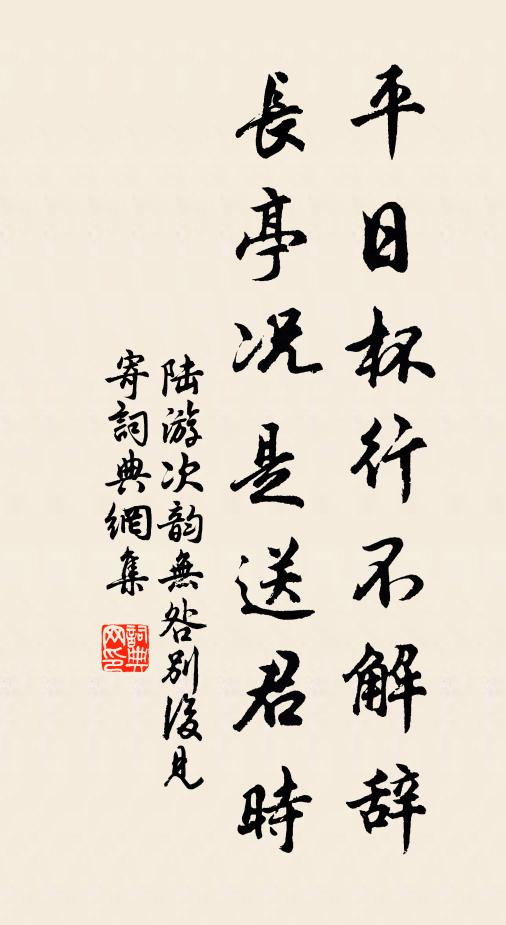 平日杯行不解辞
長亭况是送君時
陆游次韵無咎别後見
寄詞典網集
詞典
网印